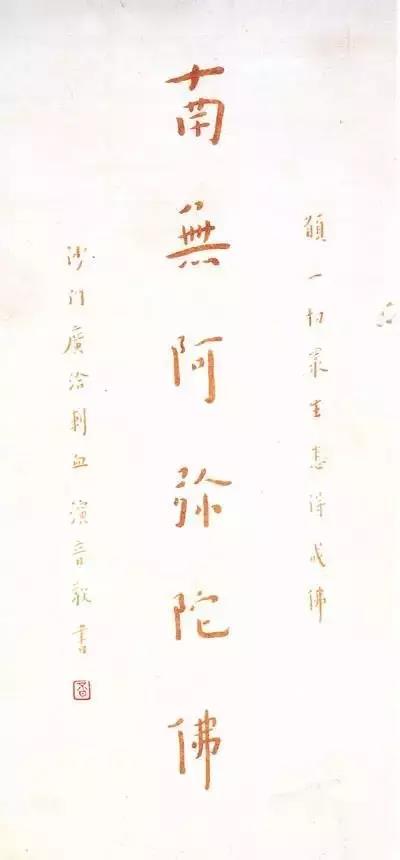 願一切眾生悉得成佛
南無阿弥陀佛
沙門廣洽刺血演音敬書